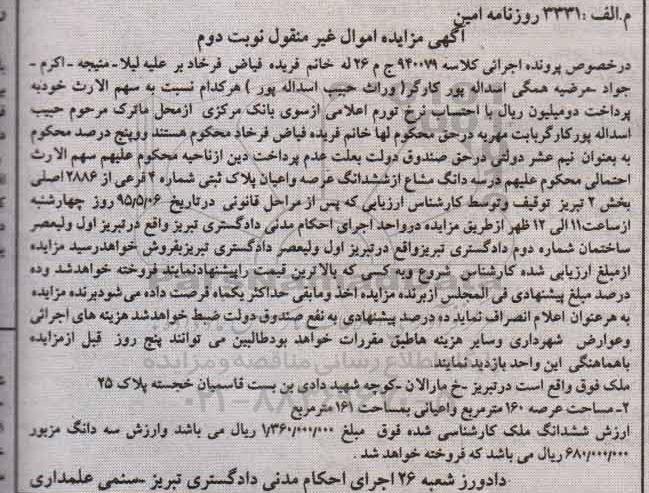 م.الف :۳۳۳۱ روزنامه امین
آگهی مزایده اموال غیر منقول نوبت دوم
درخصوص پرونده اجرائی کلاسه ۹۴۰۰۷۹ ج م ۲۶ له خانم فریده فیاض فرخاد بر علیه لیلا- منیجه -اکرم -
جواد -مرضیه همگی اسداله پور کارگر( وراث حبیب اسداله پور ) هرکدام نسبت به سهم الارث خودبه
پرداخت دومیلیون ریال با احتساب نرخ تورم اعلامی ازسوی بانک مرکزی ازمحل ماترک مرحوم حبیب
اسداله پورکارگربابت مهریه درحق محکوم لها خانم فریده فیاض فرخاد محکوم هستند ووپنج درصد محکوم
به بعنوان نیم عشر دولتی درحق صندوق دولت بعلت عدم پرداخت دین ازناحیه محکوم علیهم سهم الارث
احتمالی محکوم علیهم درسه دانگ مشاع ازششدانگ عرصه واعیان پلاک ثبتی شماره ۴ فرعی از ۲۸۸۶ اصلی
بخش ۲ تبریز توقیف وتوسط کارشناس ارزیابی که پس از مراحل قانونی درتاریخ ۹۵/۵/۰۶ روز چهارشنبه
ازساعت۱۱الی ۱۲ ظهر ازطریق مزایده درواحد اجرای احکام مدنی دادگستری تبریز واقع درتبریز اول ولیعصر
ساختمان شماره دوم دادگستری تبریزواقع درتبریز اول ولیعصر دادگستری تبریزبفروش خواهدرسید مزایده
ازمبلغ ارزیابی شده کارشناس شروع وبه کسی که بالا ترین قیمت راپیشنهادنمایند فروخته خواهدشد وده
درصد مبلغ پیشنهادی فی المجلس ازبرنده مزایده اخذ ومابقی حداکثر یکماه فرصت داده می شودبرنده مزایده
به هرعنوان اعلام انصراف نماید ده درصد پیشنهادی به نفع صندوق دولت ضبط خواهدشد هزینه های اجرائی
وعوارض شهرداری وسایر هزینه هاطبق مقررات خواهد بودطالبین می توانند پنج روز قبل ازمزایده
باهماهنگی این واحد بازدید نمایند
ملک فوق واقع است درتبریز -خ مارالان -کوجه شهید دادی بن بست قاسمیان خجسته پلاک ۲۵
۲- مساحت عرصه ۱۶۰ مترمربع واعیانی بمساحت ۱۶۱ مترمربع
ارزش ششدانگ ملک کارشناسی شده فوق مبلغ ۱/۳۶۰/۰۰۰/۰۰۰ ریال می باشد وارزش سه دانگ مزبور
۶۸۰/۰۰۰/۰۰۰ ریال می باشد که فروخته خواهد شد .
دادورز شعبه ۲۶ اجرای احکام مدنی دادگستری تبریز -سنمی علمداری